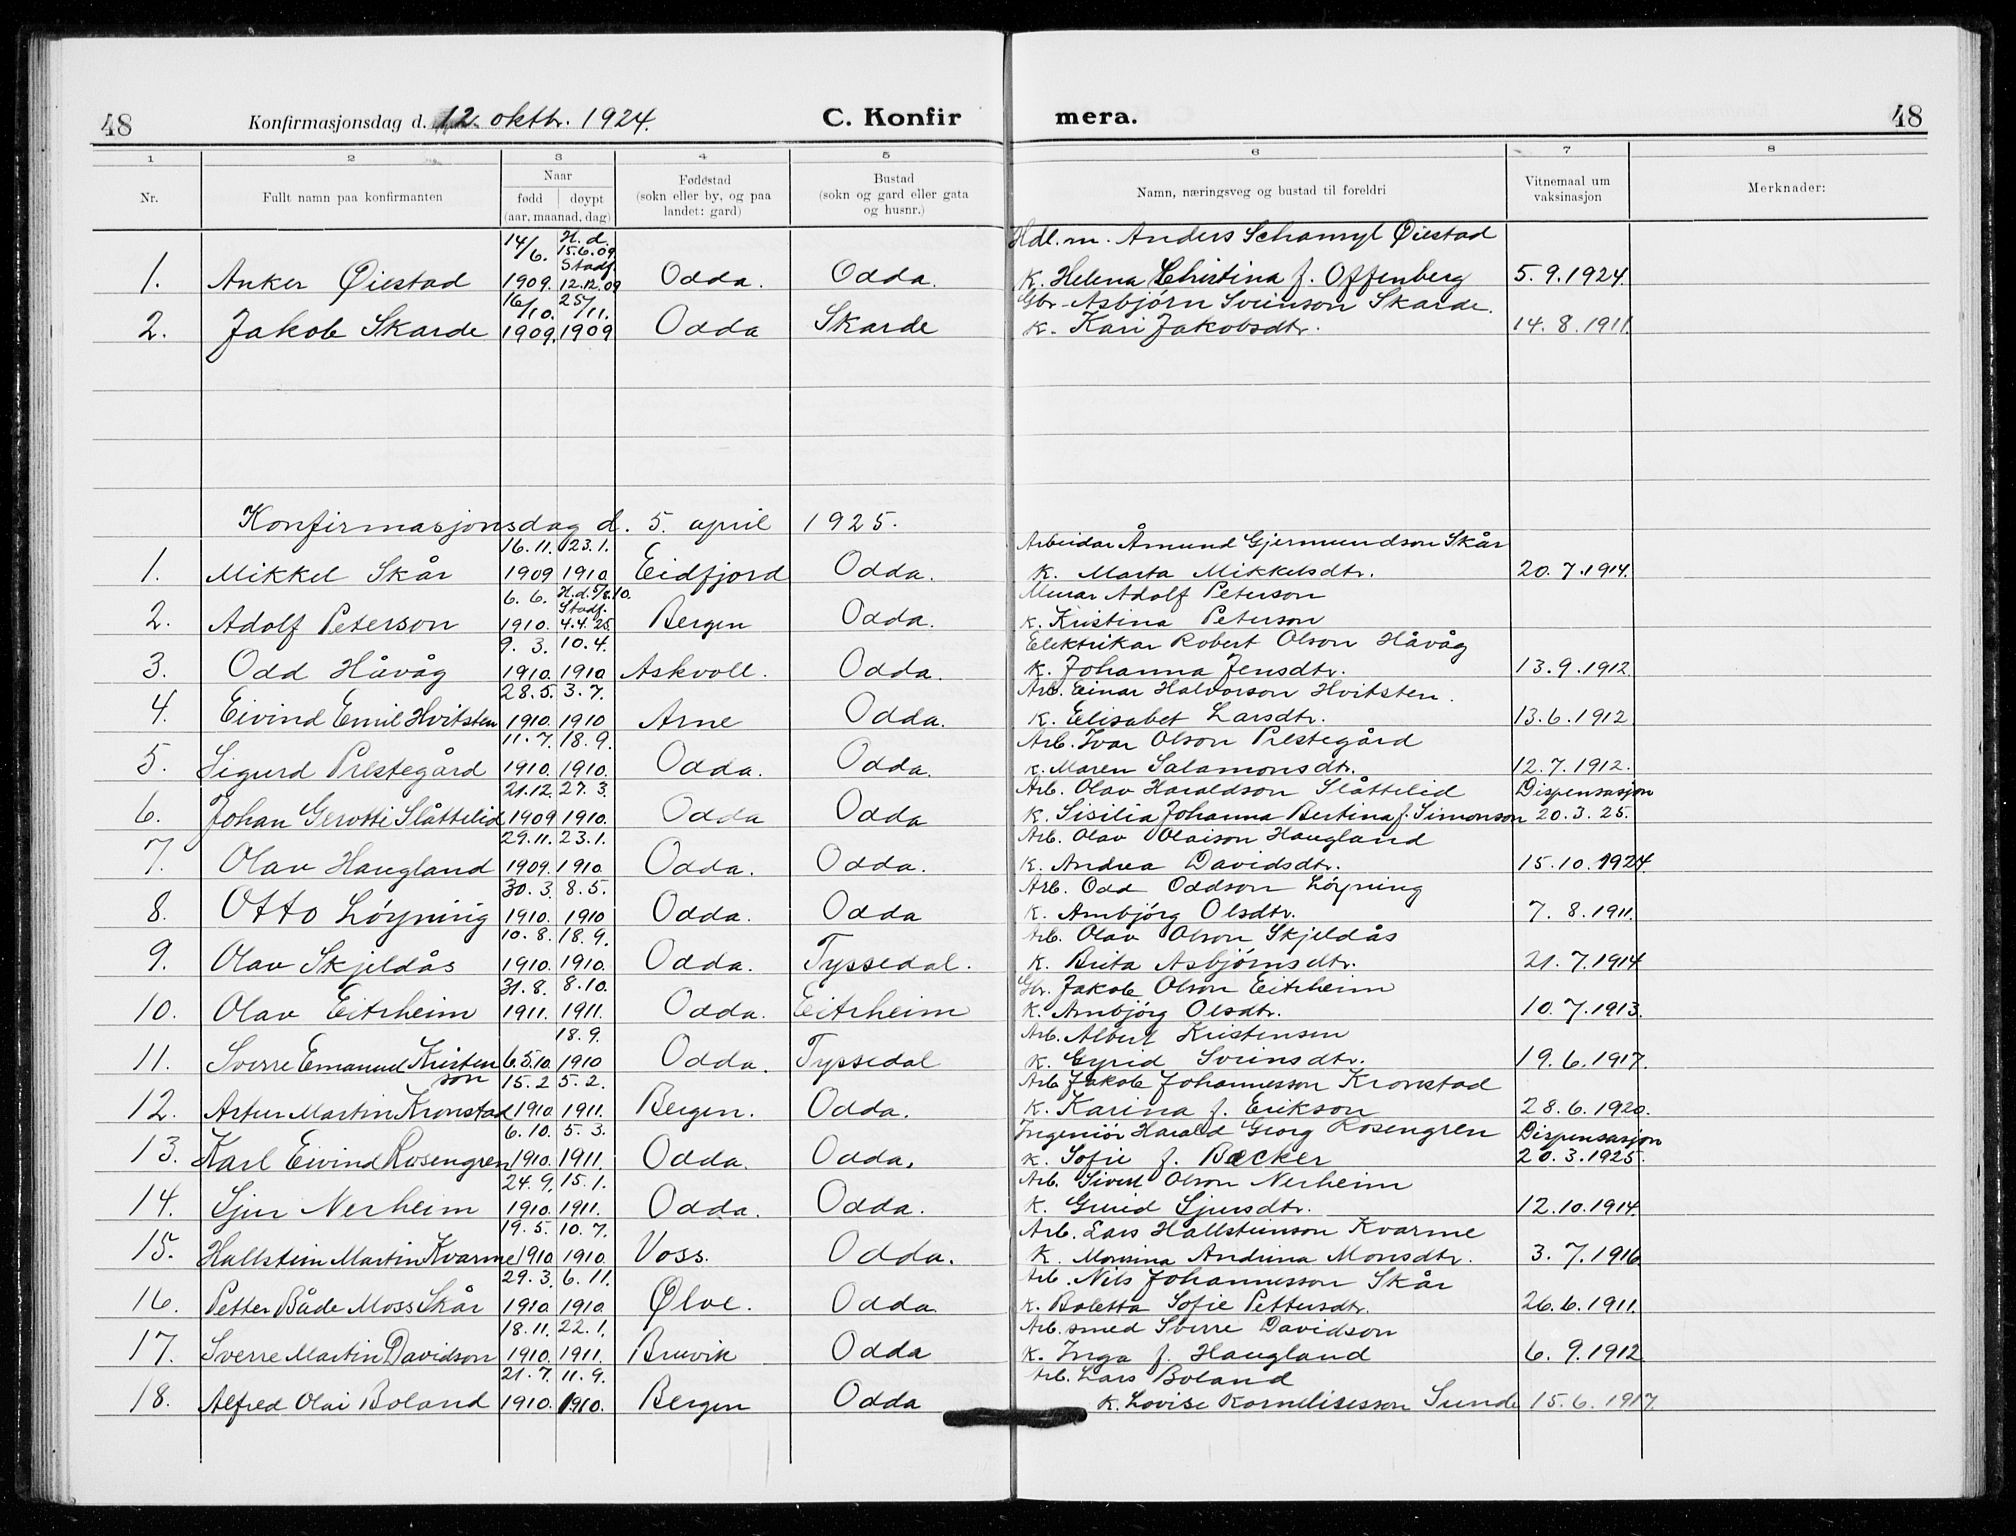 48 Konfirmasjonsdag d. 12. oktbr. 1924. C. Konfir mera. 48
1 2 3 4 5 6 7 8
Nr. Fullt namn paa konfirmanten Naar Fødestad Bustad Namn, næringsveg og bustad til foreldri Vitnemaal um Merknader:
født døypt (sokn eller by, og paa (sokn og gard eller gata vaksinasjon
(aar, maanad, dag) landet: gard) og husnr.)
14/6. H. d. 15.6.09 Stadf. Hdl.m. Anders Schamyl Øiestad
1. Anker Øiestad 1909. 12.12.09 Odda. Odda. K. Helena Christina f. Offenberg 5.9.1924.
16/10. 25/11. Gbr. Asbjörn Sveinson Skarde.
2. Jakob Skarde 1909. 1909 Odda Skarde K. Kari Jakobsdtr. 14.8.1911.
Konfirmasjonsdag d. 5. april 1925.
16.11. 23.1. Arbeidar Åmund Gjermundson Skår
1. Mikkel Skår 1909 1910 Eidfjord Odda. K. Marta Mikkelsdtr. 20.7.1914.
6.6. H.d. 9/8.10. Stadf. Murar Adolf Peterson
2. Adolf Peterson 1910. 4.4.25. Bergen Odda. K. Kristina Peterson
9.3. 10.4. Elektrikar Robert Olson Håvåg
3. Odd Håvåg 1910. 1910 Askvoll. Odda. K. Johanna Jensdtr. 13.9.1912.
28.5. 3.7. Arb. Einar Halvorson Hvitsten.
4. Eivind Emil Hvitsten 1910. 1910 Arne Odda. K. Elisabet Larsdtr. 13.6.1912
11.7. 18.9. Arb. Ivar Olson Prestegård
5. Sigurd Prestegård 1910. 1910. Odda. Odda. K. Maren Salamonsdtr. 12.7.1912.
21.12. 27.3. Arb. Olav Haraldson Slåttelid Dispensasjon
6. Johan Gerotti Slåttelid 1909 1910. Odda Odda K. Sisilia Johanna Bertina f. Simonson 20.3.25.
29.11. 23.1. Arb. Olav Olaison Haugland
7. Olav Haugland 1909. 1910. Odda. Odda. K. Andrea Davidsdtr. 15.10.1924.
30.3. 8.5. Arb. Odd Oddson Löyning
8. Otto Löyning 1910. 1910 Odda. Odda K. Ambjörg Olsdtr. 7.8.1911.
10.8. 18.9. Arb. Olav Olson Skjeldås
9. Olav Skjeldås 1910. 1910. Odda. Tyssedal. K. Brita Asbjörnsdtr. 21.7.1914
31.8. 8.10. Gbr. Jakob Olson Eitrheim
10. Olav Eitrheim 1911. 1911. Odda. Eitrheim K. Ambjörg Olsdtr. 10.7.1913.
18.9. Arb. Albert Kristensen
11. Sverre Emanuel Kristenson 6.5.10. 1910 Odda. Tyssedal K. Gyrid Sveinsdtr. 19.6.1917.
15.2 5.2. Arb. Jakob Johannesson Kronstad
12. Artur Martin Kronstad 1910 1911. Bergen. Odda. K. Karina f. Erikson 28.6.1920.
6.10. 5.3. Ingeniör Harald Georg Rosengren Dispensasjon
13. Karl Eivind Rosengren 1910. 1911. Odda. Odda. K. Sofie f. Bæcker 20.3.1925.
24.9. 15.1. Arb. Sivert Olson Nerheim
14. Sjur Nerheim 1910. 1911. Odda. Odda. K. Gurid Sjursdtr. 12.10.1914.
19.5. 10.7. Arb. Lars Hallsteinson Kvarme
15. Hallstein Martin Kvarme 1910 1910. Voss. Odda. K. Monsina Andrina Monsdtr. 3.7.1916.
29.3. 6.11. Arb. Nils Johannesson Skår
16. Petter Både Moss Skår 1910. 1910. Ølve. Odda. K. Boletta Sofie Pettersdtr. 26.6.1911.
18.11. 22.1. Arb. smed Sverre Davidson
17. Sverre Martin Davidson 1910. 1911. Bruvik Odda K. Inga f. Haugland 6.9.1912.
21.7. 11.9. Arb. Lars Boland
18. Alfred Olai Boland 1910. 1910. Bergen Odda K. Lovise Kornelisesson Sunde 15.6.1917.